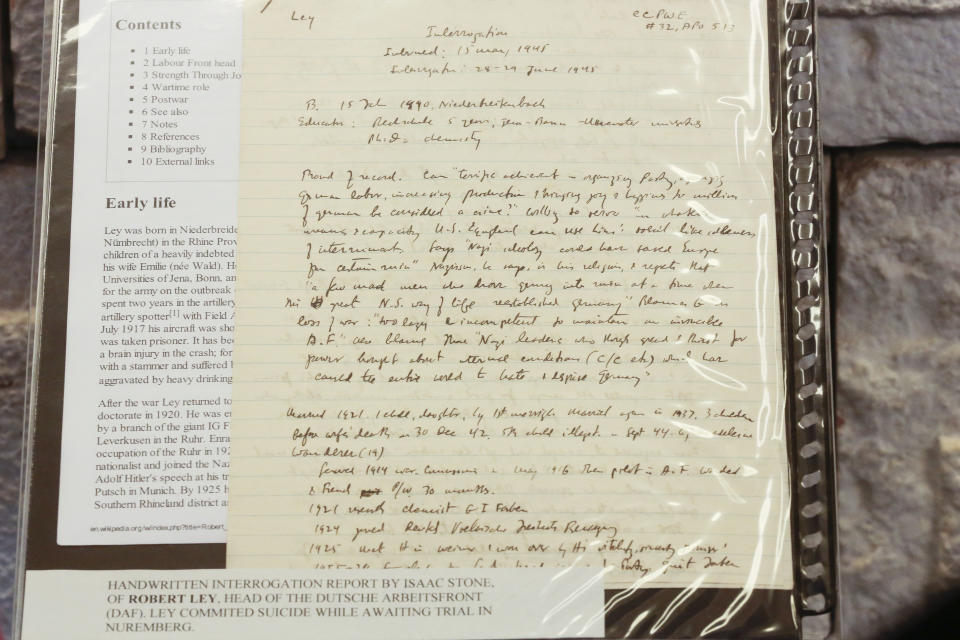 Contents
1 Early life
2 Labour Front head
3 Strength Through Jo
4 Wartime role
5 Postwar
6 See also
7 Notes
8 References
9 Bibliography
10 External links
Early life
Ley was born in Niederbreide
Nümbrecht) in the Rhine Prov
children of a heavily indebted
his wife Emilie (née Wald). He
Universities of Jena, Bonn, an
for the army on the outbreak
spent two years in the artillery
artillery spotter[1] with Field A
July 1917 his aircraft was sho
was taken prisoner. It has bee
a brain injury in the crash; for
with a stammer and suffered b
aggravated by heavy drinking
After the war Ley returned to
doctorate in 1920. He was e
by a branch of the giant IG F
Leverkusen in the Ruhr. Enra
occupation of the Ruhr in 192
nationalist and joined the Naz
Adolf Hitler's speech at his tr
Putsch in Munich. By 1925 h
Southern Rhineland district a
en.wikipedia.org/w/index.php?title=Robert_
Ley
CCPWE
#32, APO 513
Interrogation
Interned: 15 May 1945
Interrogation: 28-29 June 1945
B: 15 Feb 1890, Niederbreitenbach
Education: Realschule 5 years; Jena-Bonn-Muenster
Ph.D. chemistry
Proud of record. Can "terrific achievement in organizing Party,
German labor, increasing production & bringing joy & happiness to millions
of Germans be considered a crime?" Willing to serve "in whatever
& capacity U.S. England can use him."
of internment. Says "Nazi ideology could have saved Europe
from certain ruin" Nazism, he says, is his religion, & regrets that
"a few mad men who drove Germany into ruin at a time when
this great N.S. way of life reestablished Germany." Blames
loss of war: "too lazy & incompetent to maintain an invincible
A.F." also blames those "Nazi leaders who through greed & thirst for
power brought about internal conditions (C/C etc) which have
caused the entire world to hate & despise Germany"
Married 1921. 1 child, daughter, by 1st marriage. Married again in 1937. 3 children
before wife's death on 30 Dec 42. 5th child illegit. in Sept 44 by
Wanderer (19)
Served 1914 war. in May 1916 then pilot in A.F. Wounded
& French P/W 30 months.
1921 chemist G I Farben
1924 joined
1925 met H in Weimar & won over by H's vitality,
HANDWRITTEN INTERROGATION REPORT BY ISAAC STONE,
OF ROBERT LEY, HEAD OF THE DUTSCHE ARBEITSFRONT
(DAF). LEY COMMITED SUICIDE WHILE AWAITING TRIAL IN
NUREMBERG.